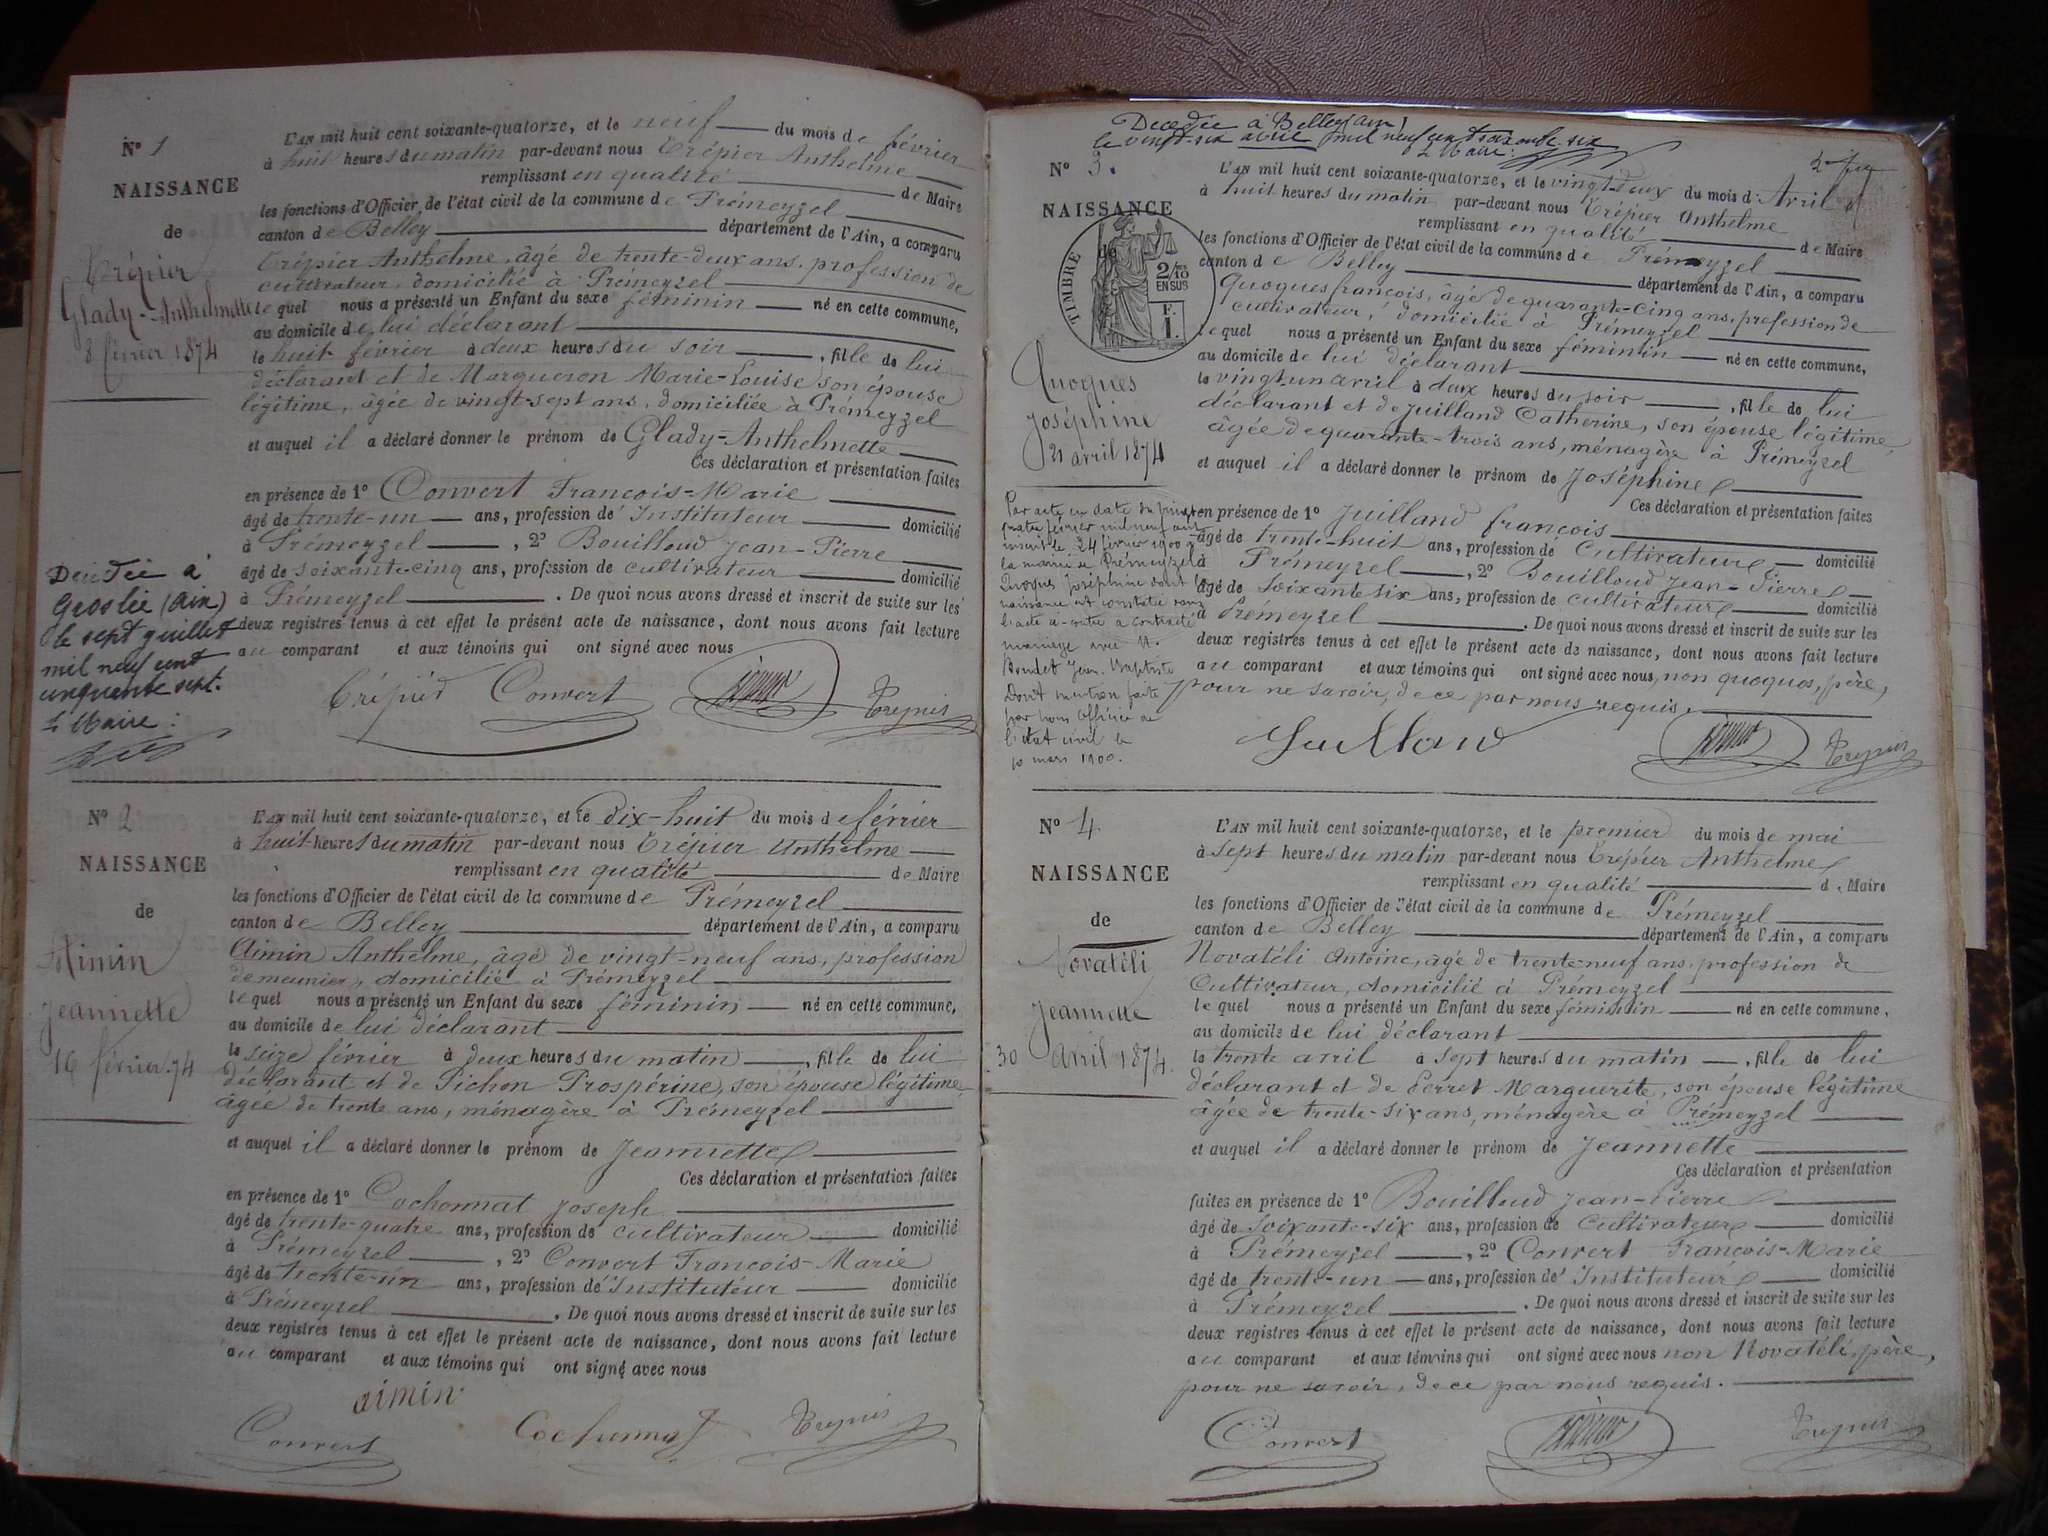 N° 1
NAISSANCE
de
Trépier
Glady-Anthelmette
8 février 1874
Décédée à
Groslée (Ain)
le sept juillet
mil neuf cent
cinquante sept.
Le Maire :
L'AN mil huit cent soixante-quatorze, et le neuf du mois de février
à huit heures du matin par-devant nous Trépier Anthelme
remplissant en qualité de Maire
les fonctions d'Officier de l'état civil de la commune de Prémeyzel
canton de Belley département de l'Ain, a comparu
Trépier Anthelme, âgé de trente-deux ans, profession de
cultivateur, domicilié à Prémeyzel
lequel nous a présenté un Enfant du sexe féminin né en cette commune,
au domicile de lui déclarant
le huit février à deux heures du soir, fille de lui
déclarant et de Margueron Marie-Louise son épouse
légitime, âgée de vingt-sept ans, domiciliée à Prémeyzel
et auquel il a déclaré donner le prénom de Glady-Anthelmette
Ces déclaration et présentation faites
en présence de 1° Convert François-Marie
âgé de trente-un ans, profession d'Instituteur domicilié
à Prémeyzel, 2° Bouilloud Jean-Pierre
âgé de soixante-cinq ans, profession de cultivateur domicilié
à Prémeyzel. De quoi nous avons dressé et inscrit de suite sur les
deux registres tenus à cet effet le présent acte de naissance, dont nous avons fait lecture
au comparant et aux témoins qui ont signé avec nous
Trépier Convert Trepier
N° 2
NAISSANCE
de
Aimin
Jeannette
16 février 74
L'AN mil huit cent soixante-quatorze, et le dix-huit du mois de février
à huit heures du matin par-devant nous Trépier Anthelme
remplissant en qualité de Maire
les fonctions d'Officier de l'état civil de la commune de Prémeyzel
canton de Belley département de l'Ain, a comparu
Aimin Anthelme, âgé de vingt-neuf ans, profession
de meunier, domicilié à Prémeyzel
lequel nous a présenté un Enfant du sexe féminin né en cette commune,
au domicile de lui déclarant
le seize février à deux heures du matin, fille de lui
déclarant et de Pichon Prospérine, son épouse légitime
âgée de trente ans, ménagère à Prémeyzel
et auquel il a déclaré donner le prénom de Jeannette
Ces déclaration et présentation faites
en présence de 1° Cochonnat Joseph
âgé de trente-quatre ans, profession de cultivateur domicilié
à Prémeyzel, 2° Convert François-Marie
âgé de trente-un ans, profession d'Instituteur domicilié
à Prémeyzel. De quoi nous avons dressé et inscrit de suite sur les
deux registres tenus à cet effet le présent acte de naissance, dont nous avons fait lecture
au comparant et aux témoins qui ont signé avec nous
aimin
Convert Cochonnat Trepier
Décédée à Belley (Ain)
le vingt-six avril mil neuf cent soixante six
Le Maire :
N° 3.
NAISSANCE
de
TIMBRE
2/10 EN SUS
F. 1.
Quoques
Joséphine
21 avril 1874
Par acte en date du vingt
quatre février mil neuf cent
24 février 1900
la mairie de Prémeyzel
Quoques Joséphine dont la
naissance est constatée dans
l'acte ci-contre a contracté
mariage avec M.
Boudet Jean-Baptiste
Dont mention faite
par nous officier de
l'état civil le
10 mars 1900.
L'AN mil huit cent soixante-quatorze, et le vingt-deux du mois d'Avril
à huit heures du matin par-devant nous Trépier Anthelme
remplissant en qualité de Maire
les fonctions d'Officier de l'état civil de la commune de Prémeyzel
canton de Belley département de l'Ain, a comparu
Quoques françois, âgé de quarante-cinq ans, profession de
cultivateur, domicilié à Prémeyzel
lequel nous a présenté un Enfant du sexe féminin né en cette commune,
au domicile de lui déclarant
le vingt-un avril à deux heures du soir, fille de lui
déclarant et de Juilland Catherine, son épouse légitime,
âgée de quarante-trois ans, ménagère à Prémeyzel
et auquel il a déclaré donner le prénom de Joséphine
Ces déclaration et présentation faites
en présence de 1° Juilland françois
âgé de trente-huit ans, profession de Cultivateur domicilié
à Prémeyzel, 2° Bouilloud Jean-Pierre
âgé de soixante six ans, profession de cultivateur domicilié
à Prémeyzel. De quoi nous avons dressé et inscrit de suite sur les
deux registres tenus à cet effet le présent acte de naissance, dont nous avons fait lecture
au comparant et aux témoins qui ont signé avec nous, non quoques, père,
pour ne savoir, de ce par nous requis.
Juilland Trepier
N° 4
NAISSANCE
de
Novatéli
Jeannette
30 Avril 1874.
L'AN mil huit cent soixante-quatorze, et le premier du mois de mai
à sept heures du matin par-devant nous Trépier Anthelme
remplissant en qualité de Maire
les fonctions d'Officier de l'état civil de la commune de Prémeyzel
canton de Belley département de l'Ain, a comparu
Novatéli Antoine, âgé de trente neuf ans, profession de
Cultivateur, domicilié à Prémeyzel
lequel nous a présenté un Enfant du sexe féminin né en cette commune,
au domicile de lui déclarant
le trente avril à sept heures du matin, fille de lui
déclarant et de Perret Marguerite, son épouse légitime
âgée de trente-six ans, ménagère à Prémeyzel
et auquel il a déclaré donner le prénom de Jeannette
Ces déclaration et présentation
faites en présence de 1° Bouilloud Jean-Pierre
âgé de soixante-six ans, profession de cultivateur domicilié
à Prémeyzel, 2° Convert François-Marie
âgé de trente-un ans, profession d'Instituteur domicilié
à Prémeyzel. De quoi nous avons dressé et inscrit de suite sur les
deux registres tenus à cet effet le présent acte de naissance, dont nous avons fait lecture
au comparant et aux témoins qui ont signé avec nous non Novatéli, père,
pour ne savoir, de ce par nous requis.
Convert Trepier